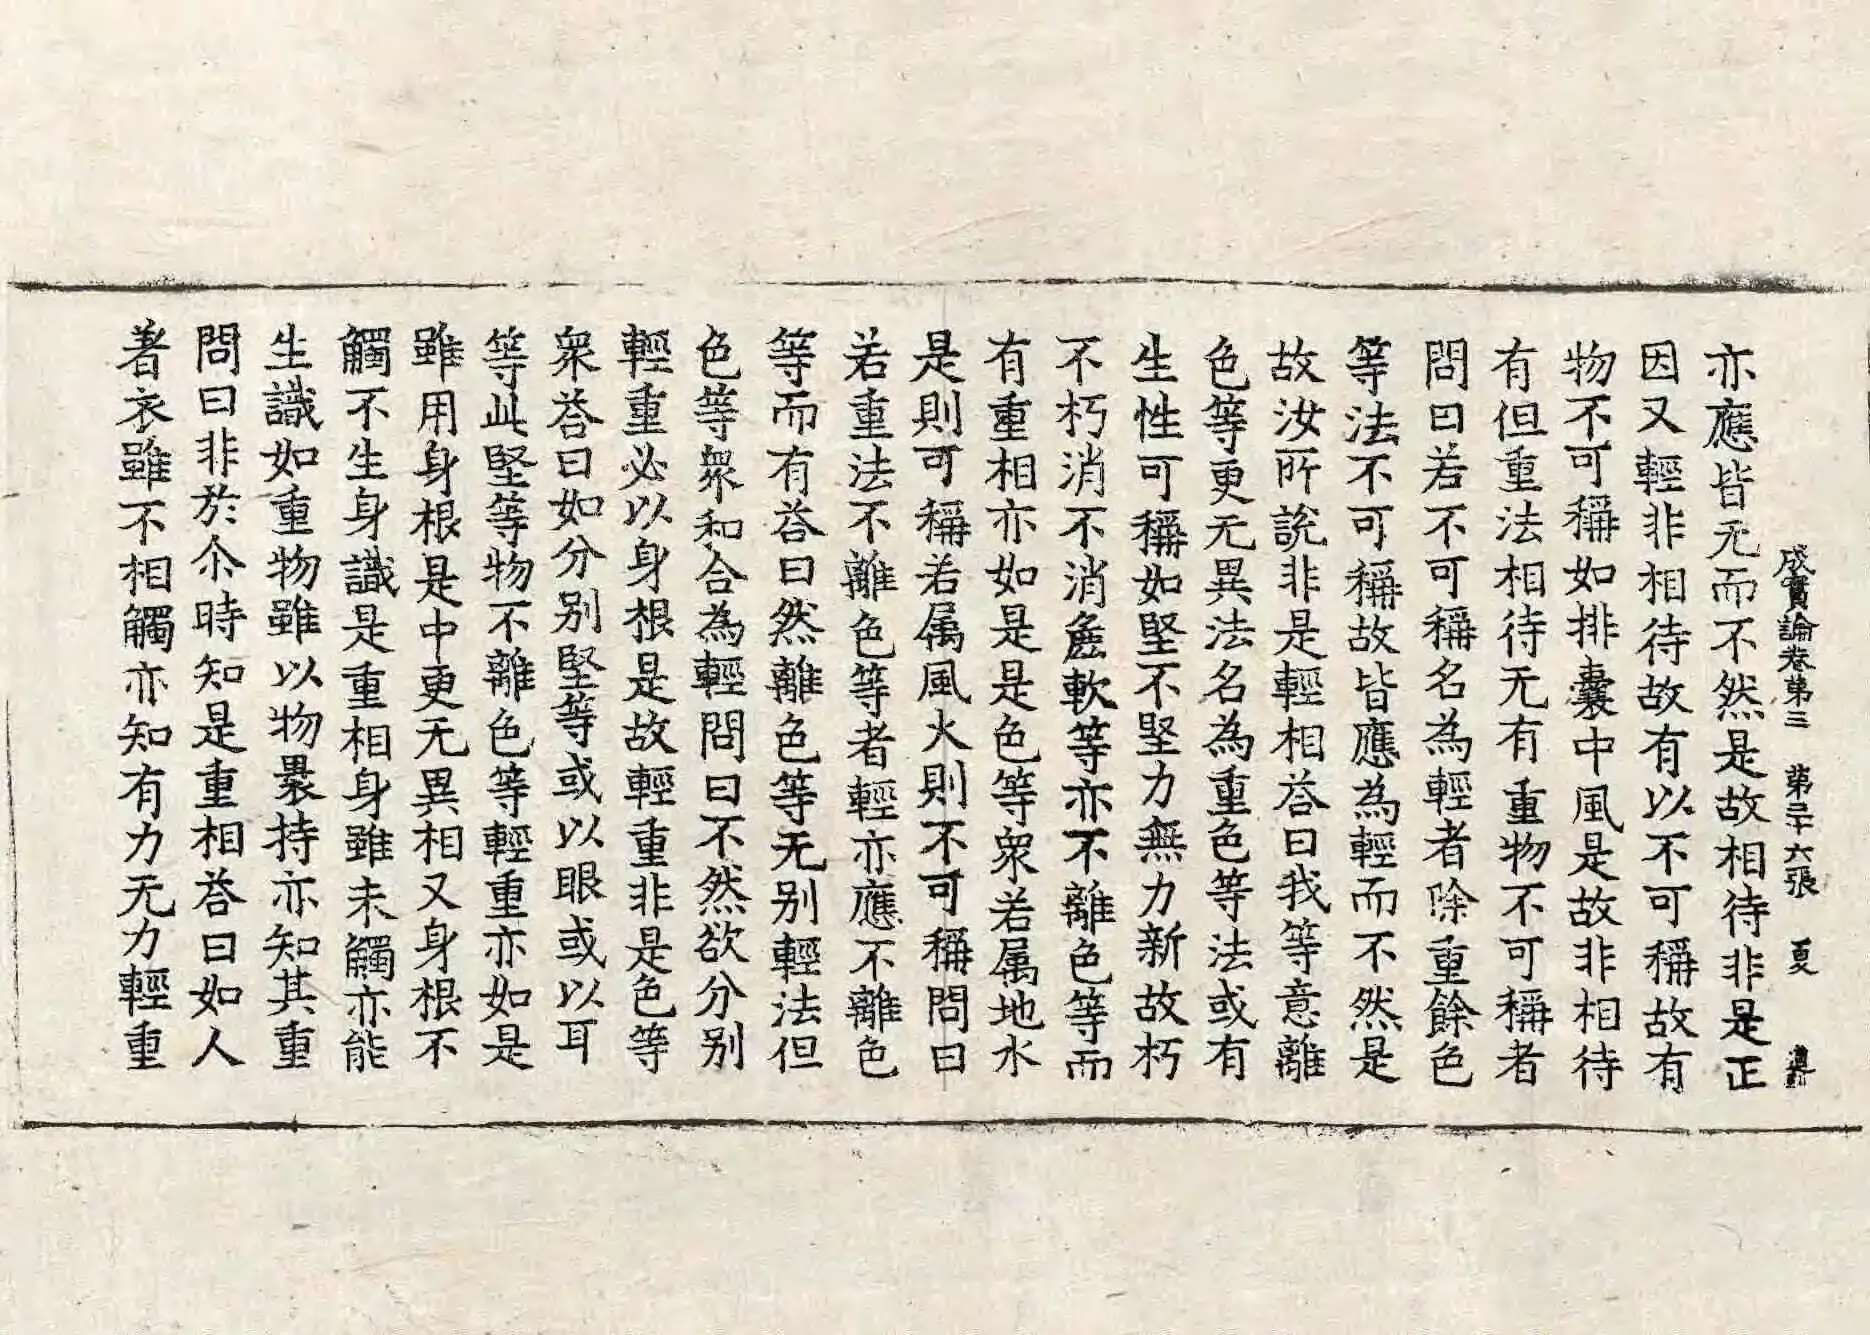 成實論卷第三　第二十六張　夏
亦應皆无而不然是故相待非是正
因又輕非相待故有以不可稱故有
物不可稱如排囊中風是故非相待
有但重法相待无有重物不可稱者
問曰若不可稱名為輕者除重餘色
等法不可稱故皆應為輕而不然是
故汝所說非是輕相荅曰我等意離
色等更无異法名為重色等法或有
生性可稱如堅不堅力無力新故朽
不朽消不消麁軟等亦不離色等而
有重相亦如是是色等衆若属地水
是則可稱若属風火則不可稱問曰
若重法不離色等者輕亦應不離色
等而有荅曰然離色等无别輕法但
色等衆和合為輕問曰不然欲分别
輕重必以身根是故輕重非是色等
衆荅曰如分别堅等或以眼或以耳
等此堅等物不離色等輕重亦如是
雖用身根是中更无異相又身根不
觸不生身識是重相身雖未觸亦能
生識如重物雖以物裹持亦知其重
問曰非於尒時知是重相荅曰如人
著衣雖不相觸亦知有力无力輕重